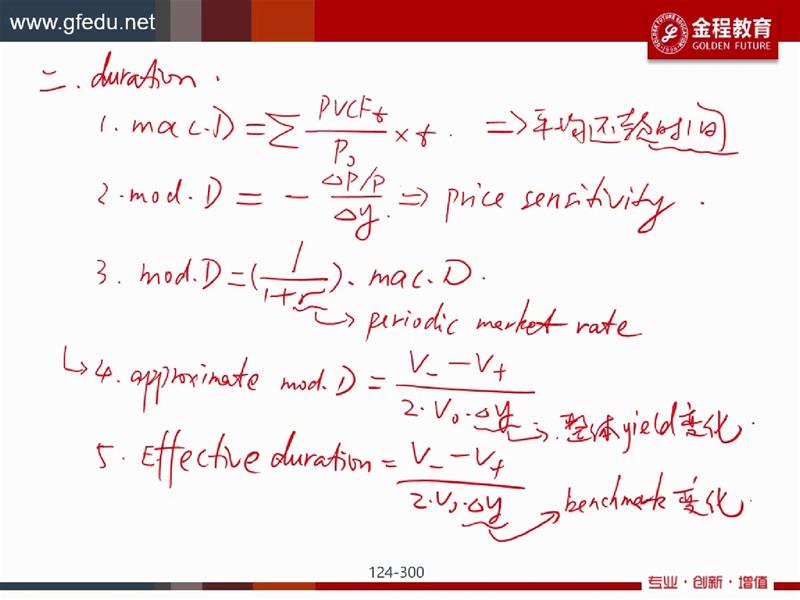 www.gfedu.net
金程教育
GOLDEN FUTURE
二. duration.
1. mac.D = Σ PVCFt / P0 × t. ⇒ 平均还款时间
2. mod.D = - ΔP/P / Δy. ⇒ price sensitivity.
3. mod.D = (1 / 1+r). mac.D.
periodic market rate
4. approximate mod.D = V- - V+ / 2·V0·Δy
整体yield变化.
5. Effective duration = V- - V+ / 2·V0·Δy
benchmark变化.
124-300
专业·创新·增值